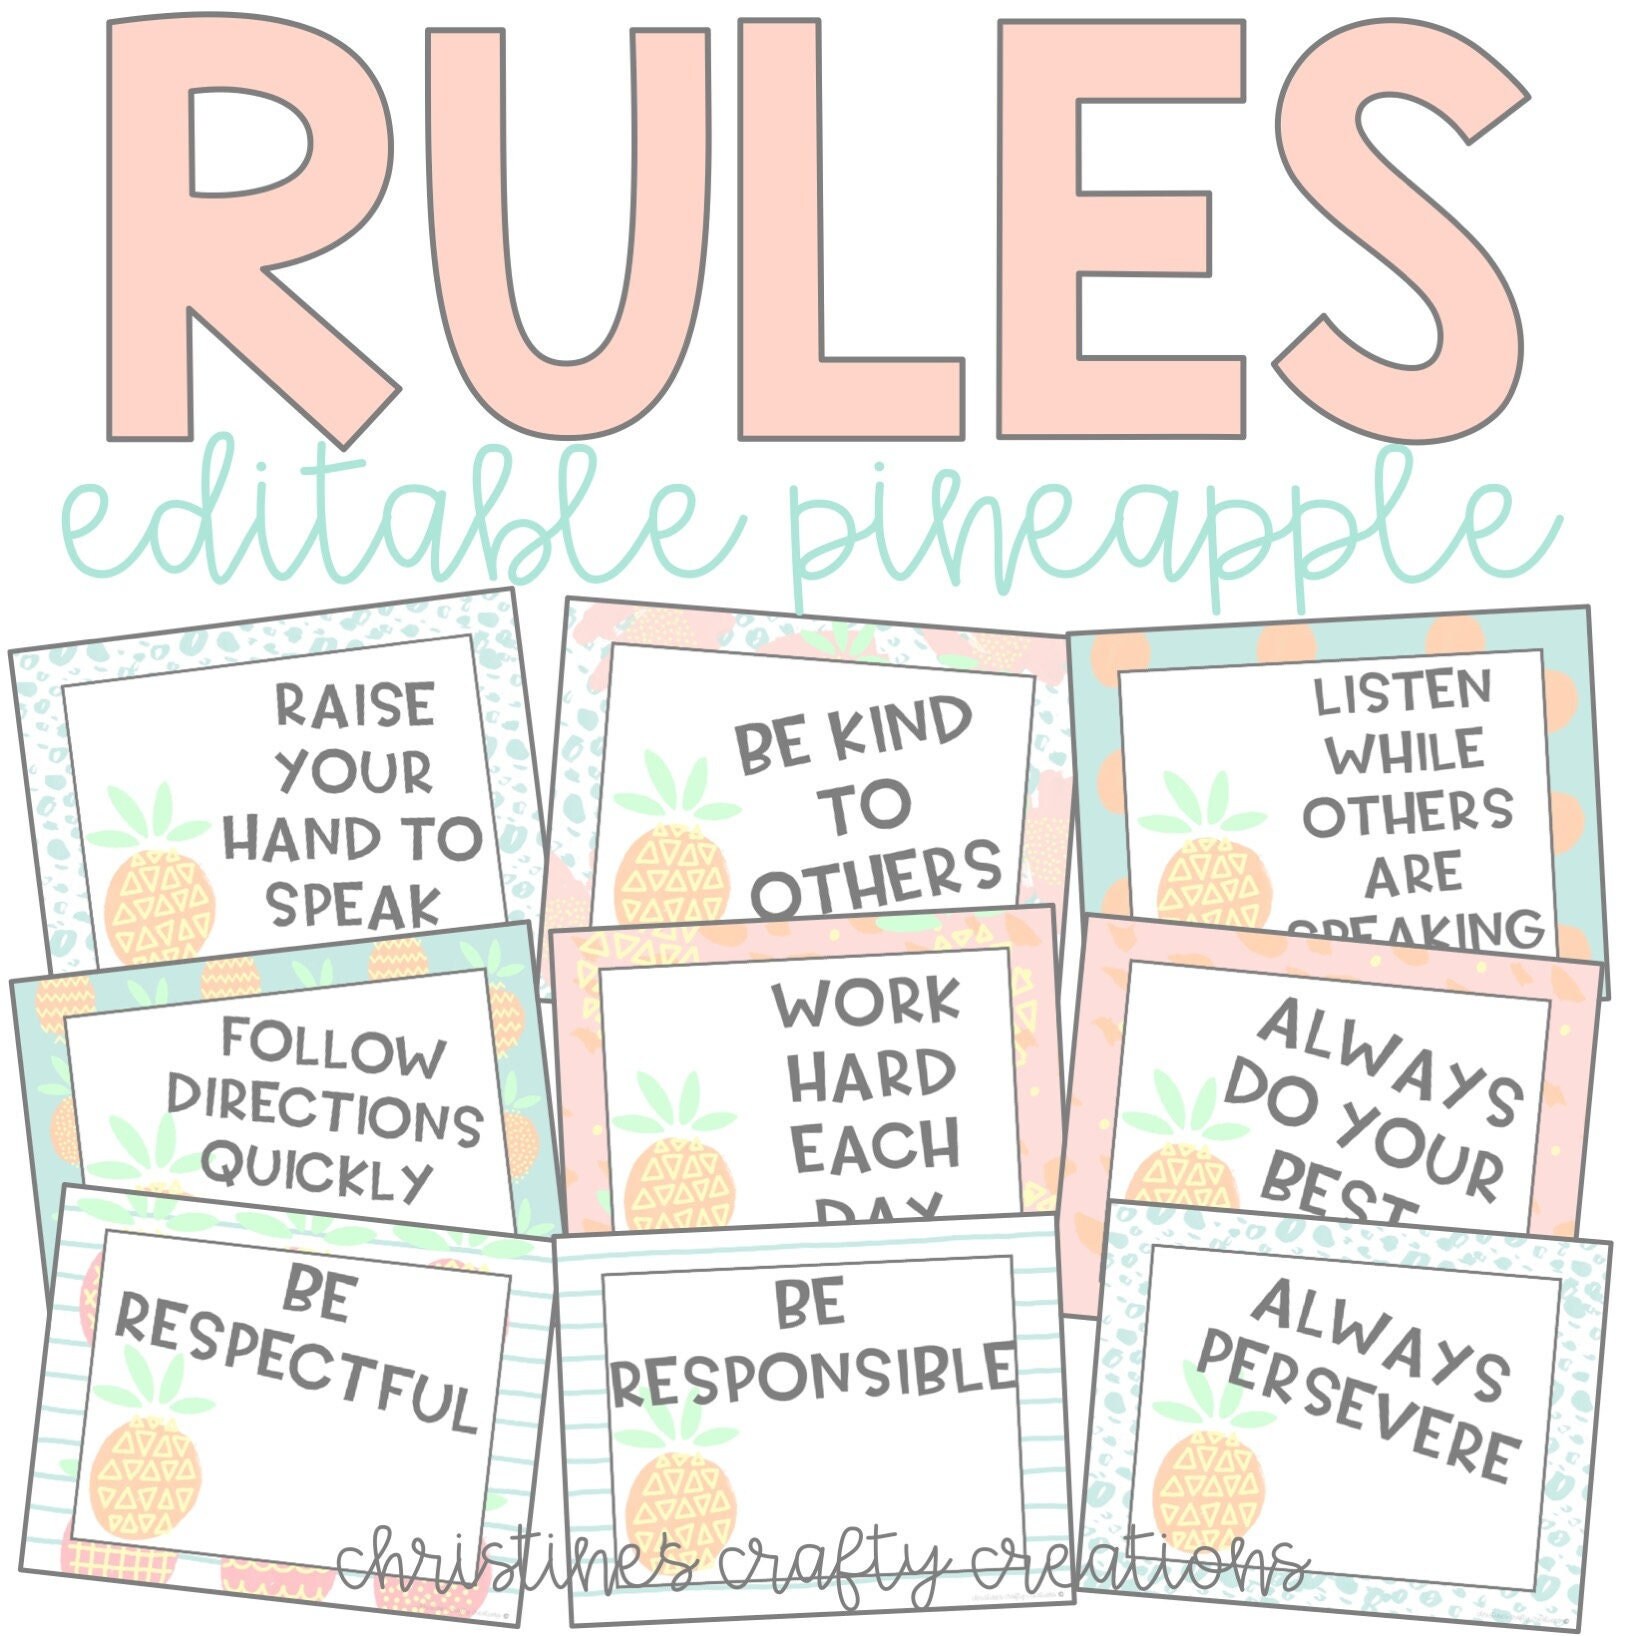 RULES
editable pineapple
RAISE
YOUR
HAND TO
SPEAK
BE KIND
TO
OTHERS
LISTEN
WHILE
OTHERS
ARE
SPEAKING
FOLLOW
DIRECTIONS
QUICKLY
WORK
HARD
EACH
DAY
ALWAYS
DO YOUR
BEST
BE
RESPECTFUL
BE
RESPONSIBLE
ALWAYS
PERSEVERE
christine's crafty creations